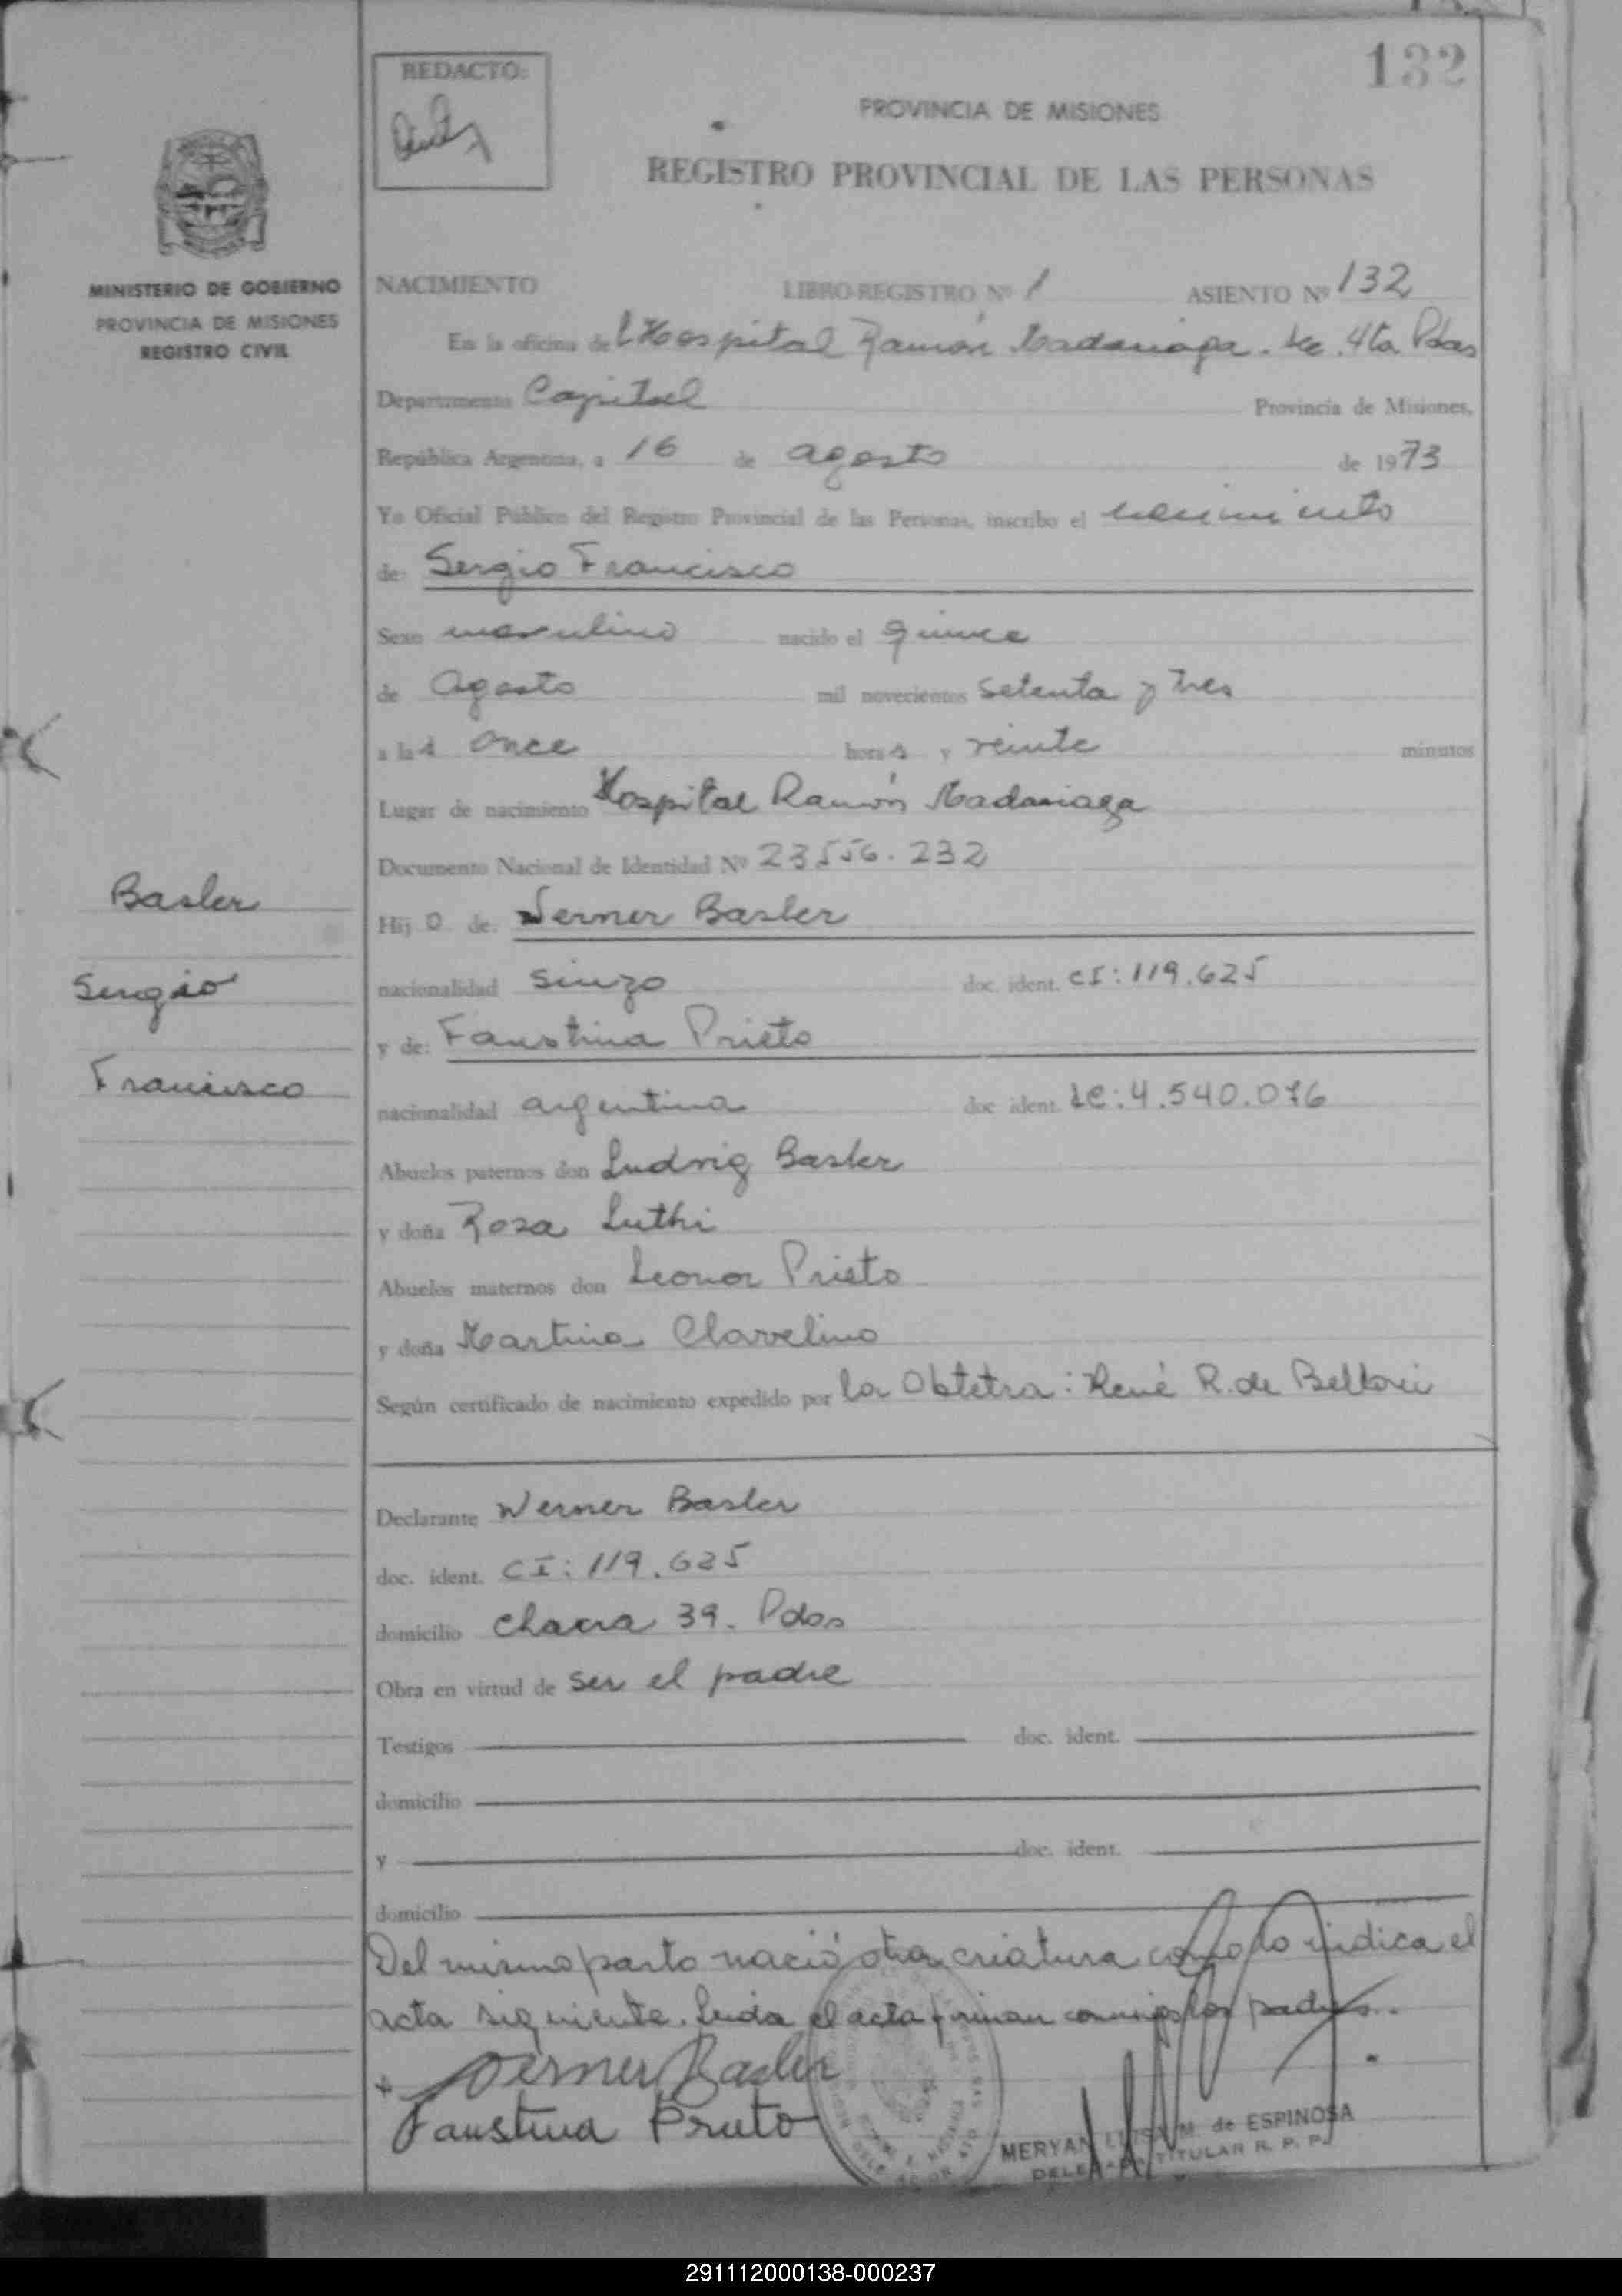 132
REDACTO:
PROVINCIA DE MISIONES
REGISTRO PROVINCIAL DE LAS PERSONAS
MINISTERIO DE GOBIERNO
PROVINCIA DE MISIONES
REGISTRO CIVIL
NACIMIENTO LIBRO-REGISTRO Nº 1 ASIENTO Nº 132
En la oficina del Hospital Ramón Madariaga. Sec. 4ta Pdas
Departamento Capital Provincia de Misiones,
República Argentina, a 16 de agosto de 1973
Yo Oficial Público del Registro Provincial de las Personas, inscribo el nacimiento
de: Sergio Francisco
Sexo masculino nacido el quince
de Agosto mil novecientos setenta y tres
a las once horas y veinte minutos
Lugar de nacimiento Hospital Ramón Madariaga
Documento Nacional de Identidad Nº 23556.232
Basler
Hijo de: Werner Basler
Sergio
nacionalidad suizo doc. ident. CI: 119.625
y de: Faustina Prieto
Francisco
nacionalidad argentina doc ident. LC: 4.540.076
Abuelos paternos don Ludwig Basler
y doña Rosa Luthi
Abuelos maternos don Leonor Prieto
y doña Martina Clavelino
Según certificado de nacimiento expedido por la Obtetra: René R. de
Declarante Werner Basler
doc. ident. CI: 119.625
domicilio Chacra 39. Pdas
Obra en virtud de ser el padre
Testigos doc. ident.
domicilio
y doc. ident.
domicilio
Del mismo parto nació otra criatura como lo indica el
acta siguiente. Leida el acta firman conmigo los padres.
Werner Basler
Faustina Prieto
MERYAN LUISA M. de ESPINOSA
DELEGADA TITULAR R. P. P.
291112000138-000237